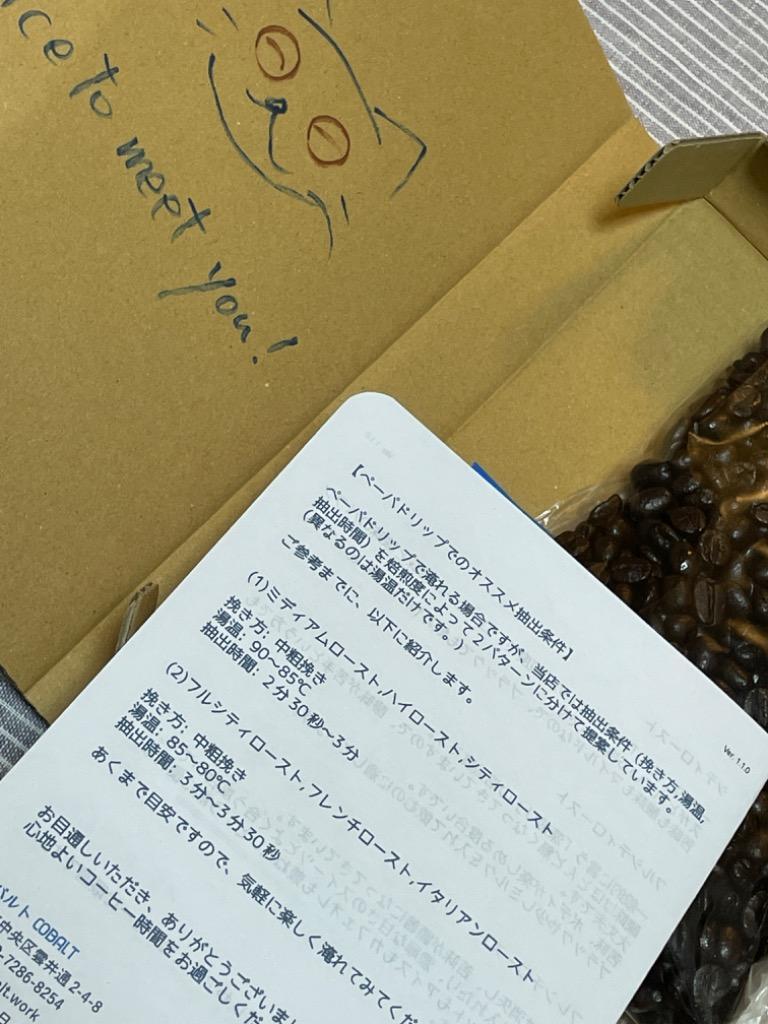 ce to meet you!
Ver. 1.1.0
【ペーパドリップでのオススメ抽出条件】
ペーパドリップで淹れる場合ですが、当店では抽出条件(挽き方,湯温,
抽出時間)を焙煎度によって2パターンに分けて提案しています。
(異なるのは湯温だけです。)
ご参考までに、以下に紹介します。
(1)ミディアムロースト,ハイロースト,シティロースト
挽き方: 中粗挽き
湯温: 90~85℃
抽出時間: 2分30秒~3分
(2)フルシティロースト,フレンチロースト,イタリアンロースト
挽き方: 中粗挽き
湯温: 85~80℃
抽出時間: 3分~3分30秒
あくまで目安ですので、気軽に楽しく淹れてみてくだ
お目通しいただき、ありがとうございまし
心地よいコーヒー時間をお過ごしくだ
バルト COBALT
中央区雲井通2-4-8
-7286-8254
lt.work
日